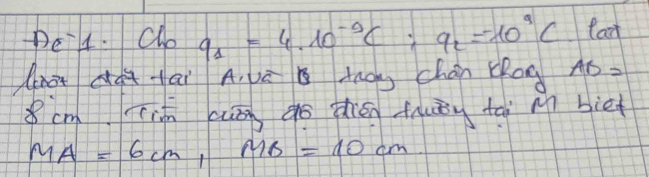 Đề 1. Cho q₁ = 4.10⁻⁹C ; q₂ = -10⁻⁹C lần
lượt đặt tại A và B trong chân không AB =
8 cm. Tìm cường độ điện trường tại M biết
MA = 6 cm, MB = 10 cm.